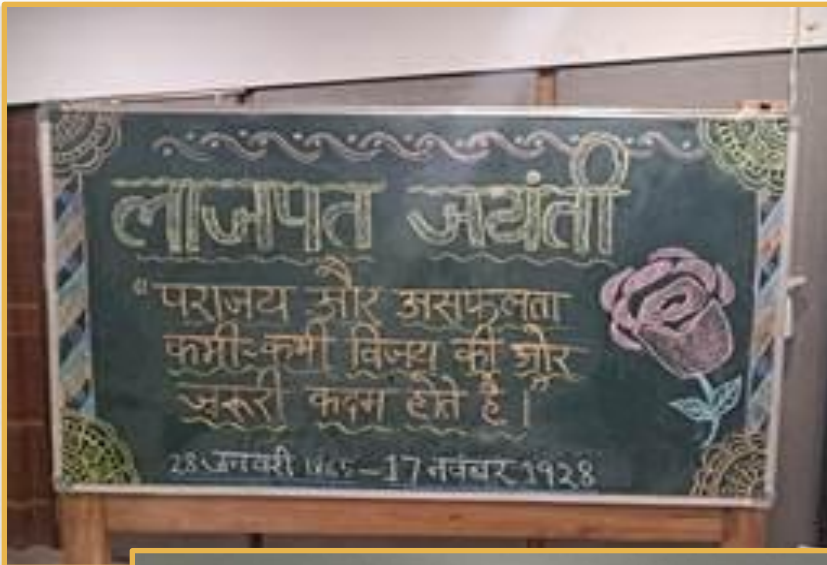 लाजपत जयंती
"पराजय और असफलता
कभी-कभी विजय की ओर
ज़रूरी कदम होते हैं।"
28 जनवरी 1865 – 17 नवंबर 1928